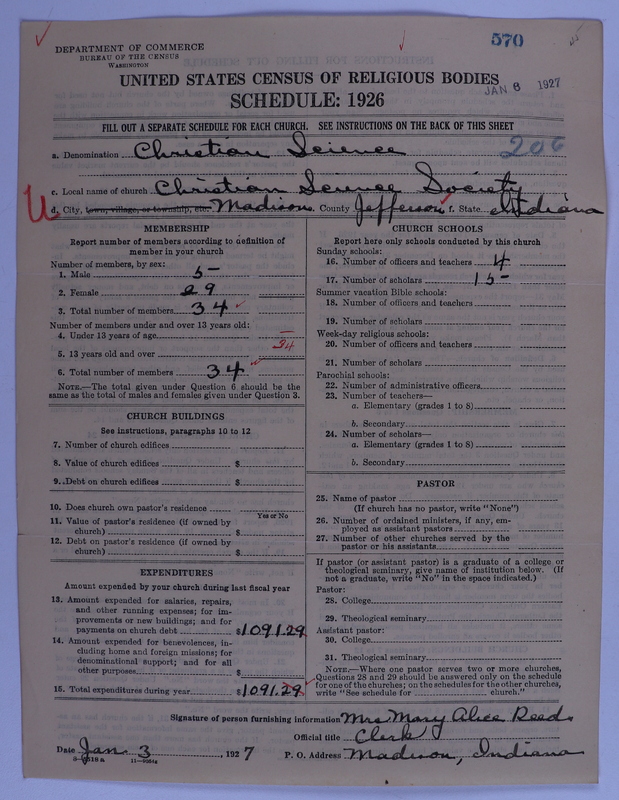 570
DEPARTMENT OF COMMERCE
BUREAU OF THE CENSUS
WASHINGTON
UNITED STATES CENSUS OF RELIGIOUS BODIES
JAN 6 1927
SCHEDULE: 1926
FILL OUT A SEPARATE SCHEDULE FOR EACH CHURCH. SEE INSTRUCTIONS ON THE BACK OF THIS SHEET
a. Denomination Christian Science 206
c. Local name of church Christian Science Society
U
d. City, town, village, or township, etc. Madison County Jefferson f. State Indiana
MEMBERSHIP
Report number of members according to definition of
member in your church
Number of members, by sex:
1. Male 5
2. Female 29
3. Total number of members 34
Number of members under and over 13 years old:
4. Under 13 years of age —
5. 13 years old and over 34
6. Total number of members 34
NOTE.—The total given under Question 6 should be the
same as the total of males and females given under Question 3.
CHURCH BUILDINGS
See instructions, paragraphs 10 to 12
7. Number of church edifices
8. Value of church edifices $
9. Debt on church edifices $
10. Does church own pastor's residence
Yes or No
11. Value of pastor's residence (if owned by
church) $
12. Debt on pastor's residence (if owned by
church) $
EXPENDITURES
Amount expended by your church during last fiscal year
13. Amount expended for salaries, repairs,
and other running expenses; for im-
provements or new buildings; and for
payments on church debt $1091.29
14. Amount expended for benevolences, in-
cluding home and foreign missions; for
denominational support; and for all
other purposes $
15. Total expenditures during year $1091.29
CHURCH SCHOOLS
Report here only schools conducted by this church
Sunday schools:
16. Number of officers and teachers 4
17. Number of scholars 15
Summer vacation Bible schools:
18. Number of officers and teachers
19. Number of scholars
Week-day religious schools:
20. Number of officers and teachers
21. Number of scholars
Parochial schools:
22. Number of administrative officers
23. Number of teachers—
a. Elementary (grades 1 to 8)
b. Secondary
24. Number of scholars—
a. Elementary (grades 1 to 8)
b. Secondary
PASTOR
25. Name of pastor
(If church has no pastor, write "None")
26. Number of ordained ministers, if any, em-
ployed as assistant pastors
27. Number of other churches served by the
pastor or his assistants
If pastor (or assistant pastor) is a graduate of a college or
theological seminary, give name of institution below. (If
not a graduate, write "No" in the space indicated.)
Pastor:
28. College
29. Theological seminary
Assistant pastor:
30. College
31. Theological seminary
NOTE.—Where one pastor serves two or more churches,
Questions 28 and 29 should be answered only on the schedule
for one of the churches; on the schedules for the other churches,
write "See schedule for church."
Signature of person furnishing information Mrs Mary Alice Reed
Official title Clerk
Date Jan 3, 1927 P. O. Address Madison, Indiana
11—9154